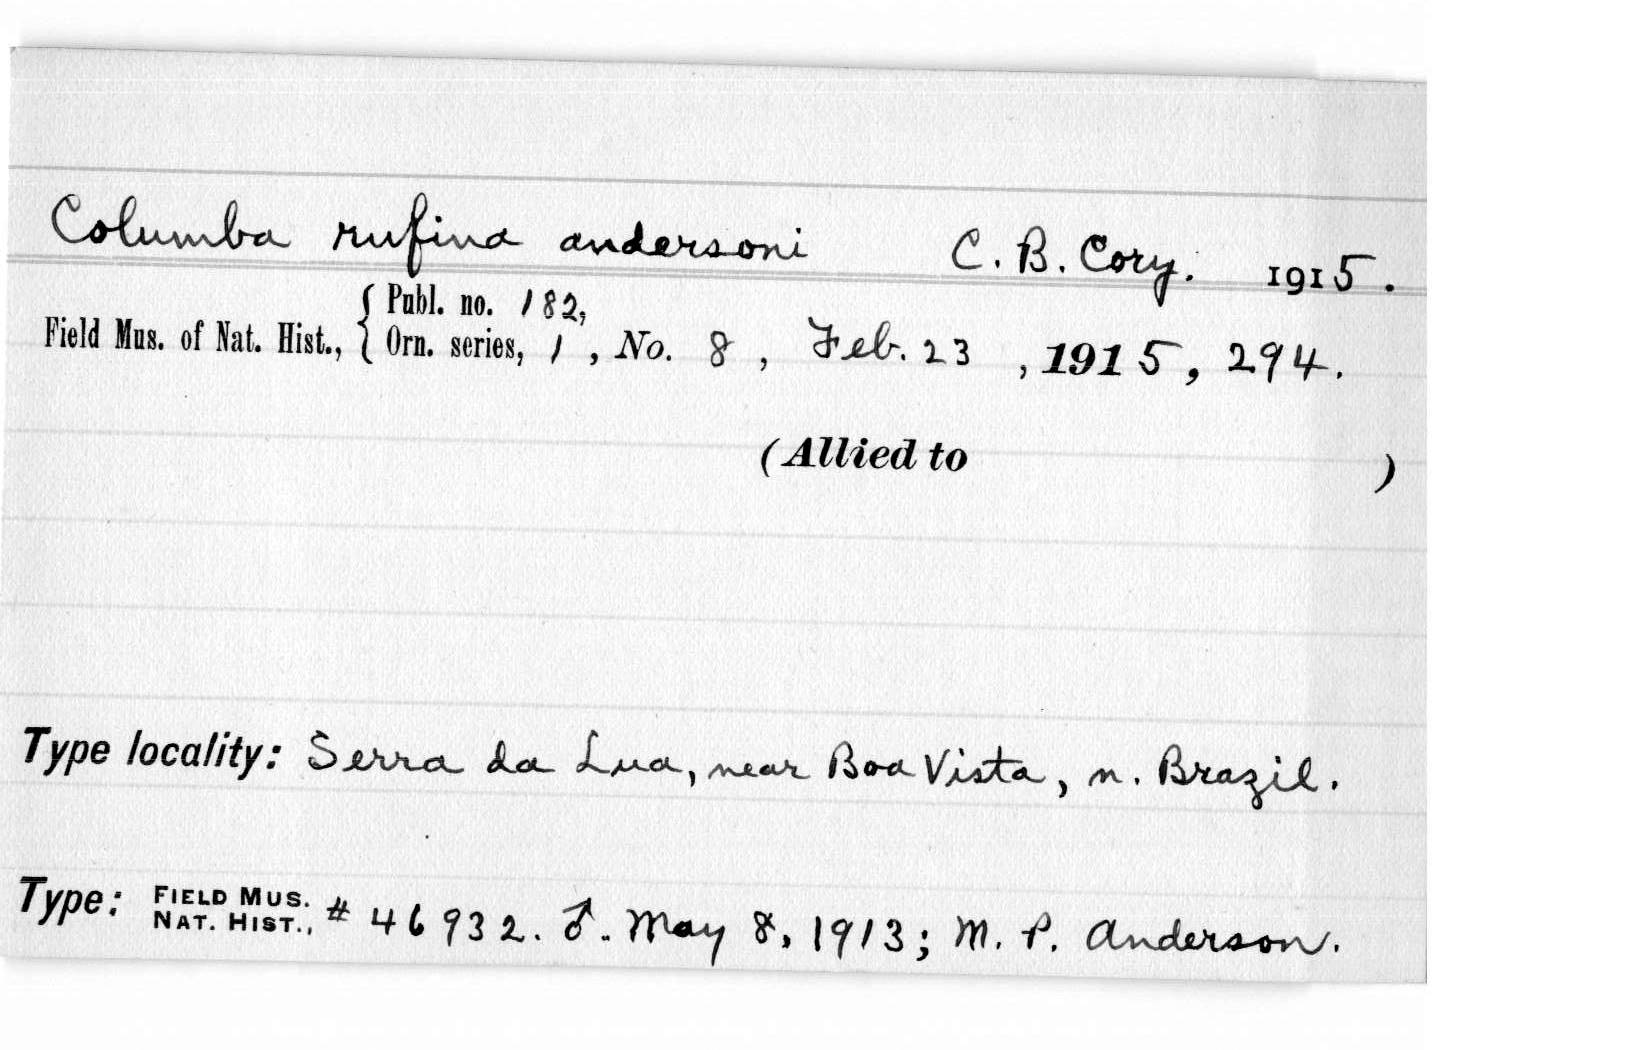 Columba rufina andersoni C. B. Cory. 1915.
Field Mus. of Nat. Hist., { Publ. no. 182,
Orn. series, 1, No. 8, Feb. 23, 1915, 294.
(Allied to )
Type locality: Serra da Lua, near Boa Vista, n. Brazil.
Type: FIELD MUS. NAT. HIST., # 46932. ♂. May 8, 1913; M. P. Anderson.